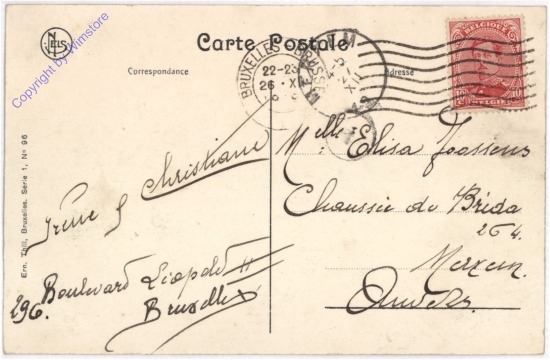 Copyright by Wimstore
NELS
Carte Postale
Correspondance
Adresse
BRUXELLES
22-23
26 XI
BELGIQUE
BELGIË
Ern. Thill, Bruxelles. Série 1, No 96
Irène & Christiane
296. Boulevard Léopold II
Bruxelles
Melle Elisa Joossens
Chaussée de Bréda
264.
Merxem.
Anvers.